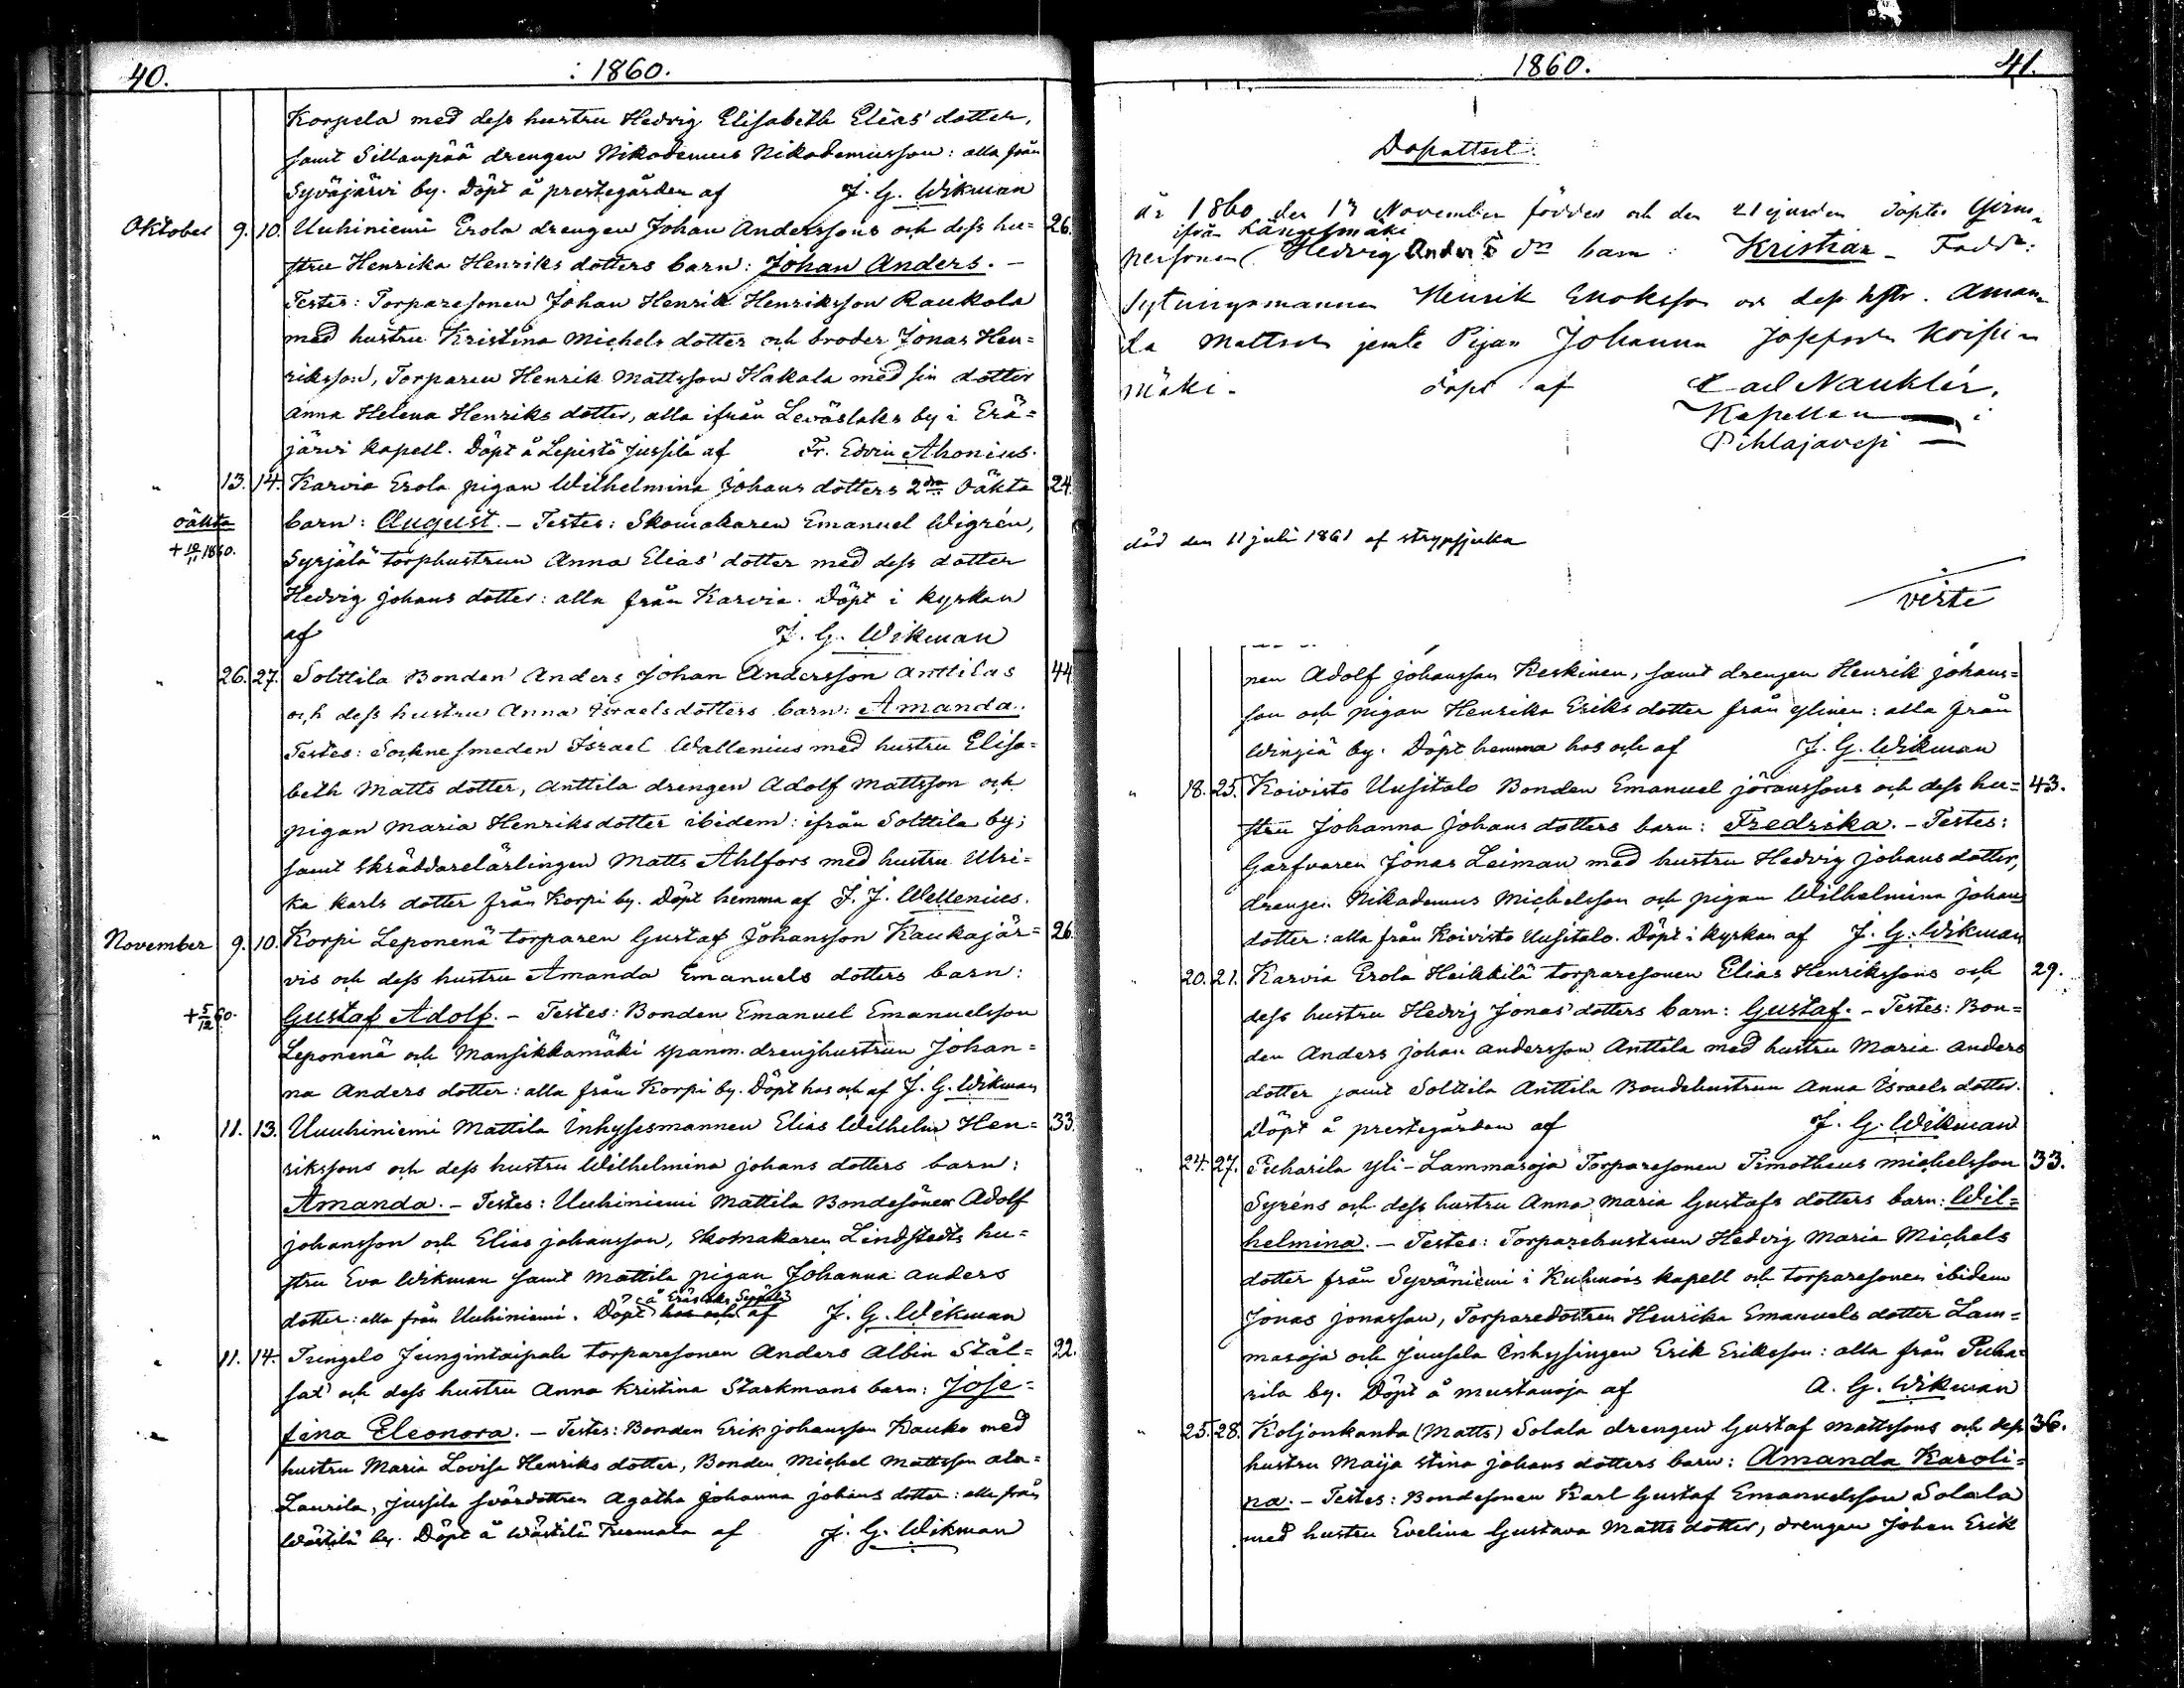 40.
: 1860.
Korpela med dess hustru Hedvig Elisabeth Elias' dotter,
samt Sillanpää drengen Nikodemus Nikodemusson: alla från
Syväjärvi by. Döpt å prestegården af J. G. Wikman
Oktober 9. 10. Uuhiniemi Erola drengen Johan Anderssons och dess hu= 26.
stru Henrika Henriks dotters barn: Johan Anders. –
Testes: Torparesonen Johan Henrik Henriksson Raukola
med hustru Kristina Michels dotter och broder Jonas Hen=
riksson, Torparen Henrik Mattsson Hakala med sin dotter
Anna Helena Henriks dotter, alla ifrån Leväslaks by i Erä=
järvi kapell. Döpt å Lepistö Jussila af Fr. Edvin Ahonius.
" 13. 14. Karvia Erola pigan Wilhelmina Johans dotters 2dra oäkta 24.
oäkta barn: August. – Testes: Skomakaren Emanuel Wigrén,
+ 10/11 1860. Syrjälä torphustrun Anna Elias' dotter med dess dotter
Hedvig Johans dotter: alla från Karvia. Döpt i kyrkan
af J. G. Wikman
" 26. 27. Solttila Bonden Anders Johan Andersson Anttilas 44
och dess hustru Anna Israelsdotters barn: Amanda.
Testes: Socknesmeden Israel Wallenius med hustru Elisa=
beth Matts dotter, Anttila drengen Adolf Mattsson och
pigan Maria Henriksdotter ibidem: ifrån Solttila by;
samt skräddarelärlingen Matts Ahlfors med hustru Ulri=
ka Karls dotter från Korpi by. Döpt hemma af J. J. Wallenius.
November 9. 10. Korpi Leponenä torparen Gustaf Johansson Kaukajär= 26.
vis och dess hustru Amanda Emanuels dotters barn:
+ 5/12 60. Gustaf Adolf. – Testes: Bonden Emanuel Emanuelsson
Leponenä och Mansikkamäki spanm. drenghustrun Johan=
na Anders dotter: alla från Korpi by. Döpt hos och af J. G. Wikman
" 11. 13. Uuuhiniemi Mattila Inhysesmannen Elias Wilhelm Hen= 33.
rikssons och dess hustru Wilhelmina Johans dotters barn:
Amanda. – Testes: Uuhiniemi Mattila Bondesönen Adolf
Johansson och Elias Johansson, Skomakaren Lindstedts hu=
stru Eva Wikman samt Mattila pigan Johanna Anders
dotter: alla från Uuhiniemi. Döpt hos och af J. G. Wikman
" 11. 14. Jungintaipale torparesonen Anders Albin Stål= 22.
sat och dess hustru Anna Kristina Starkmans barn: Jose=
fina Eleonora. – Testes: Bonden Erik Johansson Kauko med
hustru Maria Lovisa Henriks dotter, Bonden Michel Mattsson Ala=
Laurila, Jussila svärdottren Agatha Johanna Johans dotter: alla från
Wästilä by. Döpt å Wästilä af J. G. Wikman
1860.
41.
Dopattest.
År 1860 den 17 November föddes och den 21 ejusdem döptes
ifrån Längelmäki
personen Hedvig Anders dr barn: Kristian – Faddr:
Sytningsmannen Henrik Enoksson och dess hstr. Aman=
da Mattsdr jemte Pigan Johanna Josefsdr
mäki. döpt af Carl Nauklér.
Kapellan i
Pihlajavesi
död den 11 juli 1861 af strypsjuka
verte
nen Adolf Johansson Keskinen, samt drengen Henrik Johans=
son och pigan Henrika Eriks dotter från Ylinen: alla från
Winziä by. Döpt hemma hos och af J. G. Wikman
" 18. 25. Koivisto Uusitalo Bonden Emanuel Jöranssons och dess hu= 43.
stru Johanna Johans dotters barn: Fredrika. – Testes:
Garfvaren Jonas Leiman med hustru Hedvig Johans dotter,
drengen Nikodemus Michelsson och pigan Wilhelmina Johans
dotter: alla från Koivisto Uusitalo. Döpt i kyrkan af J. G. Wikman
" 20. 21. Karvia Erola Heikkilä torparesonen Elias Henrikssons och 29.
dess hustru Hedvig Jonas' dotters barn: Gustaf. – Testes: Bon=
den Anders Johan Andersson Anttila med hustru Maria Anders
dotter samt Solttila Anttila Bondehustrun Anna Israels dotter.
Döpt å prestegården af J. G. Wikman
" 24. 27. Puharila Yli-Lammasoja Torparesonen Timotheus Michelsson 33.
Syréns och dess hustru Anna Maria Gustafs dotters barn: Wil=
helmina. – Testes: Torparehustrun Hedvig Maria Michels
dotter från Syväniemi i Kuhmois kapell och torparesonen ibidem
Jonas Jonasson, Torparedottren Henrika Emanuels dotter Lam=
masoja och Juusela Inhysingen Erik Eriksson: alla från Puha=
rila by. Döpt å Mustanoja af A. G. Wikman
" 25. 28. Koljonkanta (Matts) Solala drengen Gustaf Mattssons och dess 36.
hustru Maija Stina Johans dotters barn: Amanda Karoli=
na. – Testes: Bondesonen Karl Gustaf Emanuelsson Solala
med hustru Evelina Gustava Matts dotter, drengen Johan Erik